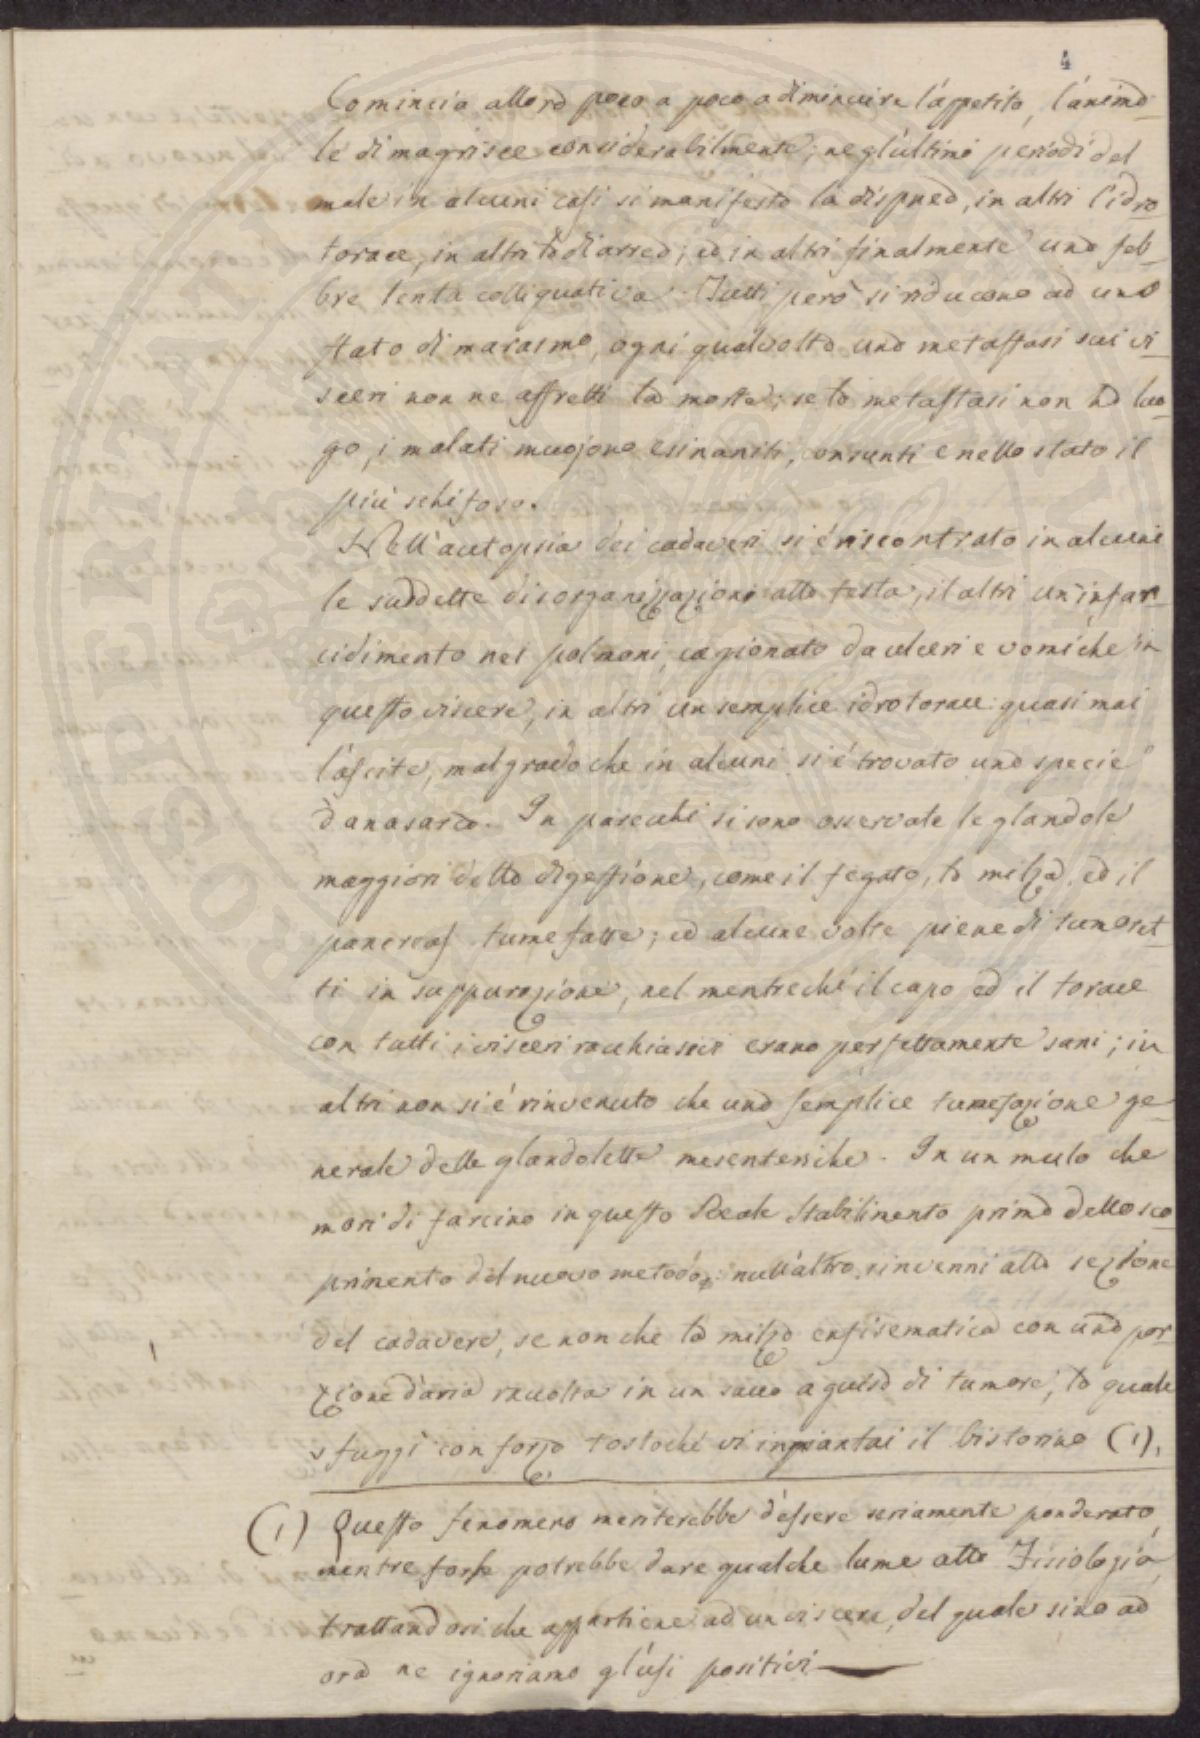 4
Comincia allora poco a poco a diminuire l'appetito, l'anima-
le dimagrisce considerabilmente; negl'ultimi periodi del
male in alcuni casi si manifesta la dispnea, in altri l'idro-
torace, in altri la diarrea; ed in altri finalmente una feb-
bre lenta colliquativa. Tutti però si riducono ad uno
stato di marasmo, ogni qualvolta una metastasi sui vi-
sceri non ne affretti la morte; se la metastasi non ha luo-
go, i malati muojono esinaniti, consunti e nello stato il
più schifoso.
Nell'autopsia dei cadaveri si é riscontrato in alcuni
le suddette disorganizzazioni alla testa, il altri un infar-
cidimento nei polmoni, cagionato da ulceri e vomiche in
questo viscere, in altri un semplice idrotorace: quasi mai
l'ascite, malgrado che in alcuni si é trovato una specie
d'anasarca. In parecchi si sono osservate le glandole
maggiori della digestione, come il fegato, la milza, ed il
pancreas tumefatte; ed alcune volte piene di tumoret-
ti in suppurazione, nel mentreché il capo ed il torace
con tutti i visceri racchiusivi erano perfettamente sani; in
altri non si é rinvenuto che una semplice tumefazione ge-
nerale delle glandolette mesenteriche. In un mulo che
morì di farcino in questo Reale Stabilimento prima dello sco-
primento del nuovo metodo, null'altro rinvenni alla sezione
del cadavere, se non che la milza enfisematica con una por-
zione d'aria raccolta in un sacco a guisa di tumore, la quale
sfuggì con forza tostoché vi inpiantai il bistorino (1).
(1) Questo fenomeno meriterebbe d'essere seriamente ponderato,
mentre forse potrebbe dare qualche lume alla Fisiologia,
trattandosi che appartiene ad un viscere, del quale sino ad
ora ne ignoriamo gl'usi positivi